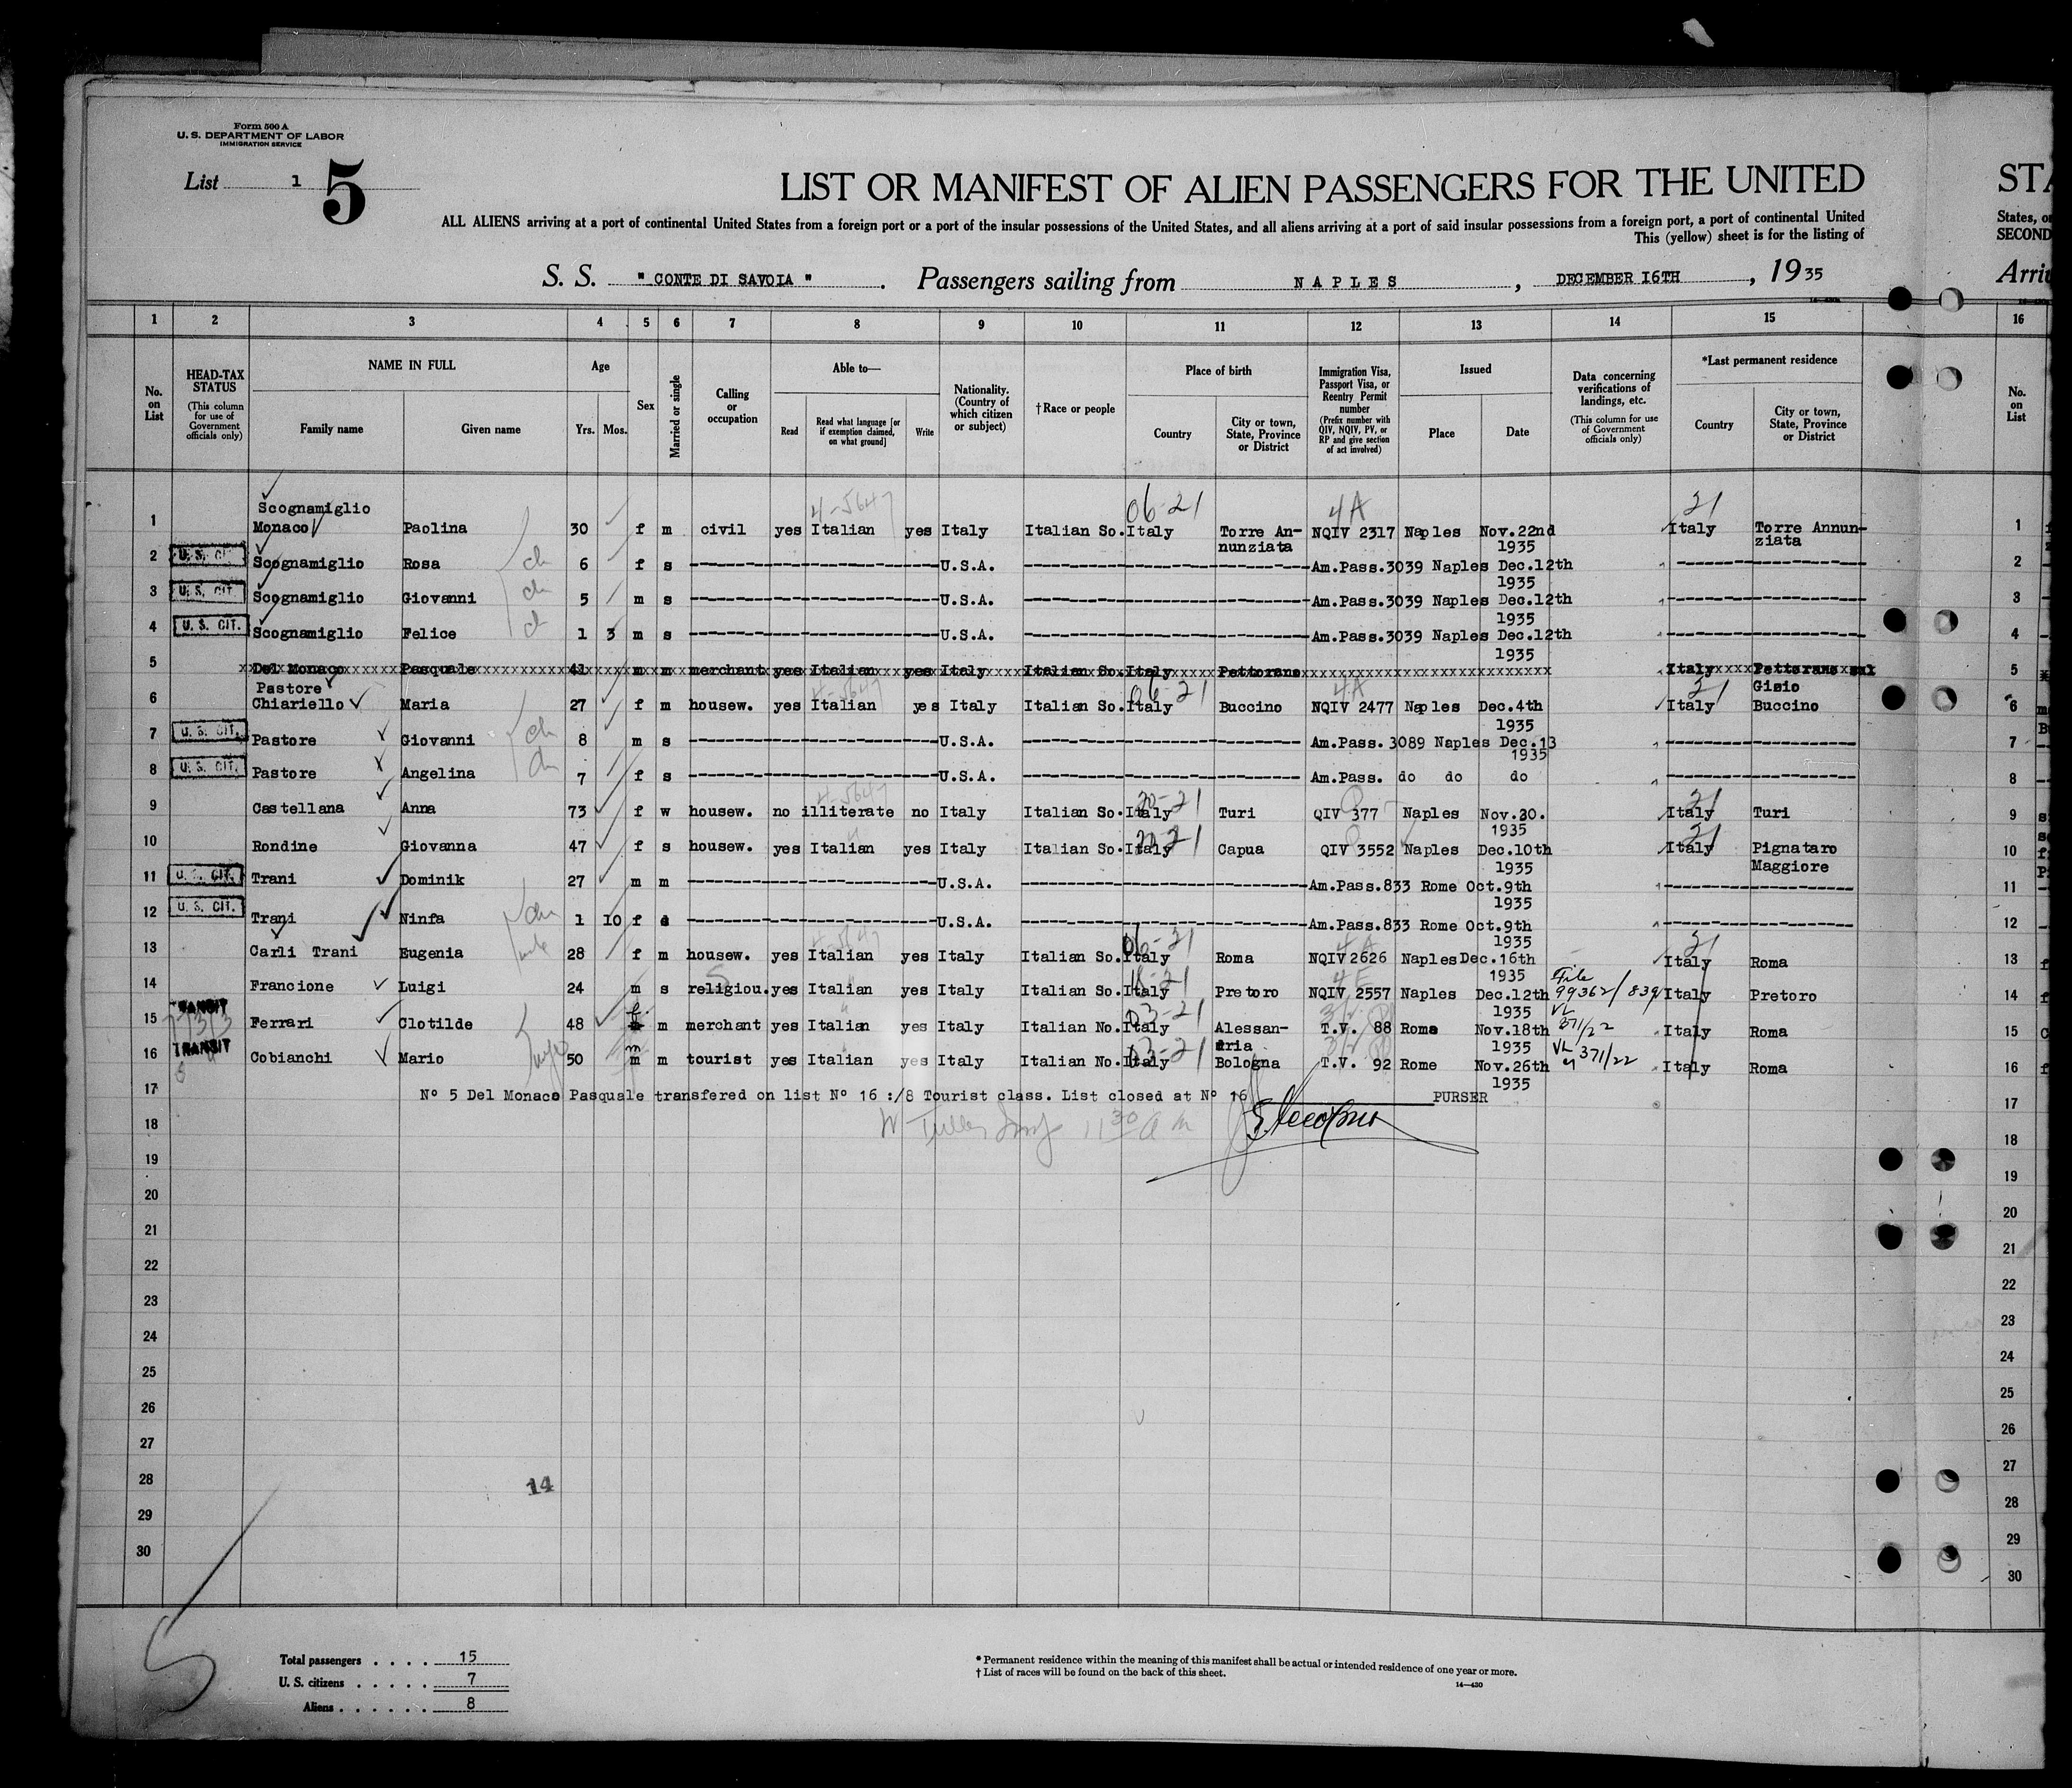 Form 500 A
U. S. DEPARTMENT OF LABOR
IMMIGRATION SERVICE
List 1 5
LIST OR MANIFEST OF ALIEN PASSENGERS FOR THE UNITED
ALL ALIENS arriving at a port of continental United States from a foreign port or a port of the insular possessions of the United States, and all aliens arriving at a port of said insular possessions from a foreign port, a port of continental United
This (yellow) sheet is for the listing of
STA
States, o
SECOND
S. S. " CONTE DI SAVOIA " . Passengers sailing from NAPLES , DECEMBER 16TH , 1935
Arri
1 2 3 4 5 6 7 8 9 10 11 12 13 14 15 16
No. on List
HEAD-TAX STATUS (This column for use of Government officials only)
NAME IN FULL Family name Given name
Age Yrs. Mos.
Sex
Married or single
Calling or occupation
Able to— Read Read what language [or if exemption claimed, on what ground] Write
Nationality. (Country of which citizen or subject)
† Race or people
Place of birth Country City or town, State, Province or District
Immigration Visa, Passport Visa, or Reentry Permit number (Prefix number with QIV, NQIV, PV, or RP and give section of act involved)
Issued Place Date
Data concerning verifications of landings, etc. (This column for use of Government officials only)
*Last permanent residence Country City or town, State, Province or District
No. on List
4-5647 06-21 4A 21
Scognamiglio
1 Monaco Paolina 30 f m civil yes Italian yes Italy Italian So. Italy Torre An- NQIV 2317 Naples Nov.22nd Italy Torre Annun- 1
nunziata 1935 ziata
2 U. S. CIT. Scognamiglio Rosa ch 6 f s U.S.A. Am.Pass.3039 Naples Dec.12th 2
1935
3 U. S. CIT. Scognamiglio Giovanni ch 5 m s U.S.A. Am.Pass.3039 Naples Dec.12th 3
1935
4 U. S. CIT. Scognamiglio Felice ch 1 3 m s U.S.A. Am.Pass.3039 Naples Dec.12th 4
1935
5 Del Monaco Pasquale 41 m m merchant yes Italian yes Italy Italian So. Italy Pettorano Italy Pettorano sul 5
Pastore 4-5647 06-21 4A 21 Gisio
6 Chiariello Maria 27 f m housew. yes Italian yes Italy Italian So. Italy Buccino NQIV 2477 Naples Dec.4th Italy Buccino 6
1935
7 U. S. CIT. Pastore Giovanni ch 8 m s U.S.A. Am.Pass. 3089 Naples Dec.13 7
1935
8 U. S. CIT. Pastore Angelina ch 7 f s U.S.A. Am.Pass. do do do 8
4-5647 20-21 21
9 Castellana Anna 73 f w housew. no illiterate no Italy Italian So. Italy Turi QIV 377 Naples Nov.30. Italy Turi 9
1935
10 Rondine Giovanna 47 f s housew. yes Italian yes Italy Italian So. Italy Capua QIV 3552 Naples Dec.10th Italy Pignataro 10
1935 Maggiore
11 U. S. CIT. Trani Dominik 27 m m U.S.A. Am.Pass.833 Rome Oct.9th 11
1935
12 U. S. CIT. Trani Ninfa ch 1 10 f s U.S.A. Am.Pass.833 Rome Oct.9th 12
1935
13 Carli Trani Eugenia wife 28 f m housew. yes Italian yes Italy Italian So. Italy Roma NQIV 2626 Naples Dec.16th Italy Roma 13
1935
14 Francione Luigi 24 m s religiou. yes Italian yes Italy Italian So. Italy Pretoro NQIV 2557 Naples Dec.12th File 99362/839 Italy Pretoro 14
1935
15 TRANSIT Ferrari Clotilde 48 f m merchant yes Italian yes Italy Italian No. Italy Alessan- T.V. 88 Roma Nov.18th VL 371/22 Italy Roma 15
dria 1935
16 TRANSIT Cobianchi Mario 50 m m tourist yes Italian yes Italy Italian No. Italy Bologna T.V. 92 Rome Nov.26th VL 371/22 Italy Roma 16
1935
17 Nº 5 Del Monaco Pasquale transfered on list Nº 16 :/8 Tourist class. List closed at Nº 16 PURSER 17
18 11 30 a m 18
19 19
20 20
21 21
22 22
23 23
24 24
25 25
26 26
27 27
28 14 28
29 29
30 30
5
Total passengers . . . . 15
U. S. citizens . . . . . 7
Aliens . . . . . . 8
* Permanent residence within the meaning of this manifest shall be actual or intended residence of one year or more.
† List of races will be found on the back of this sheet.
14—430